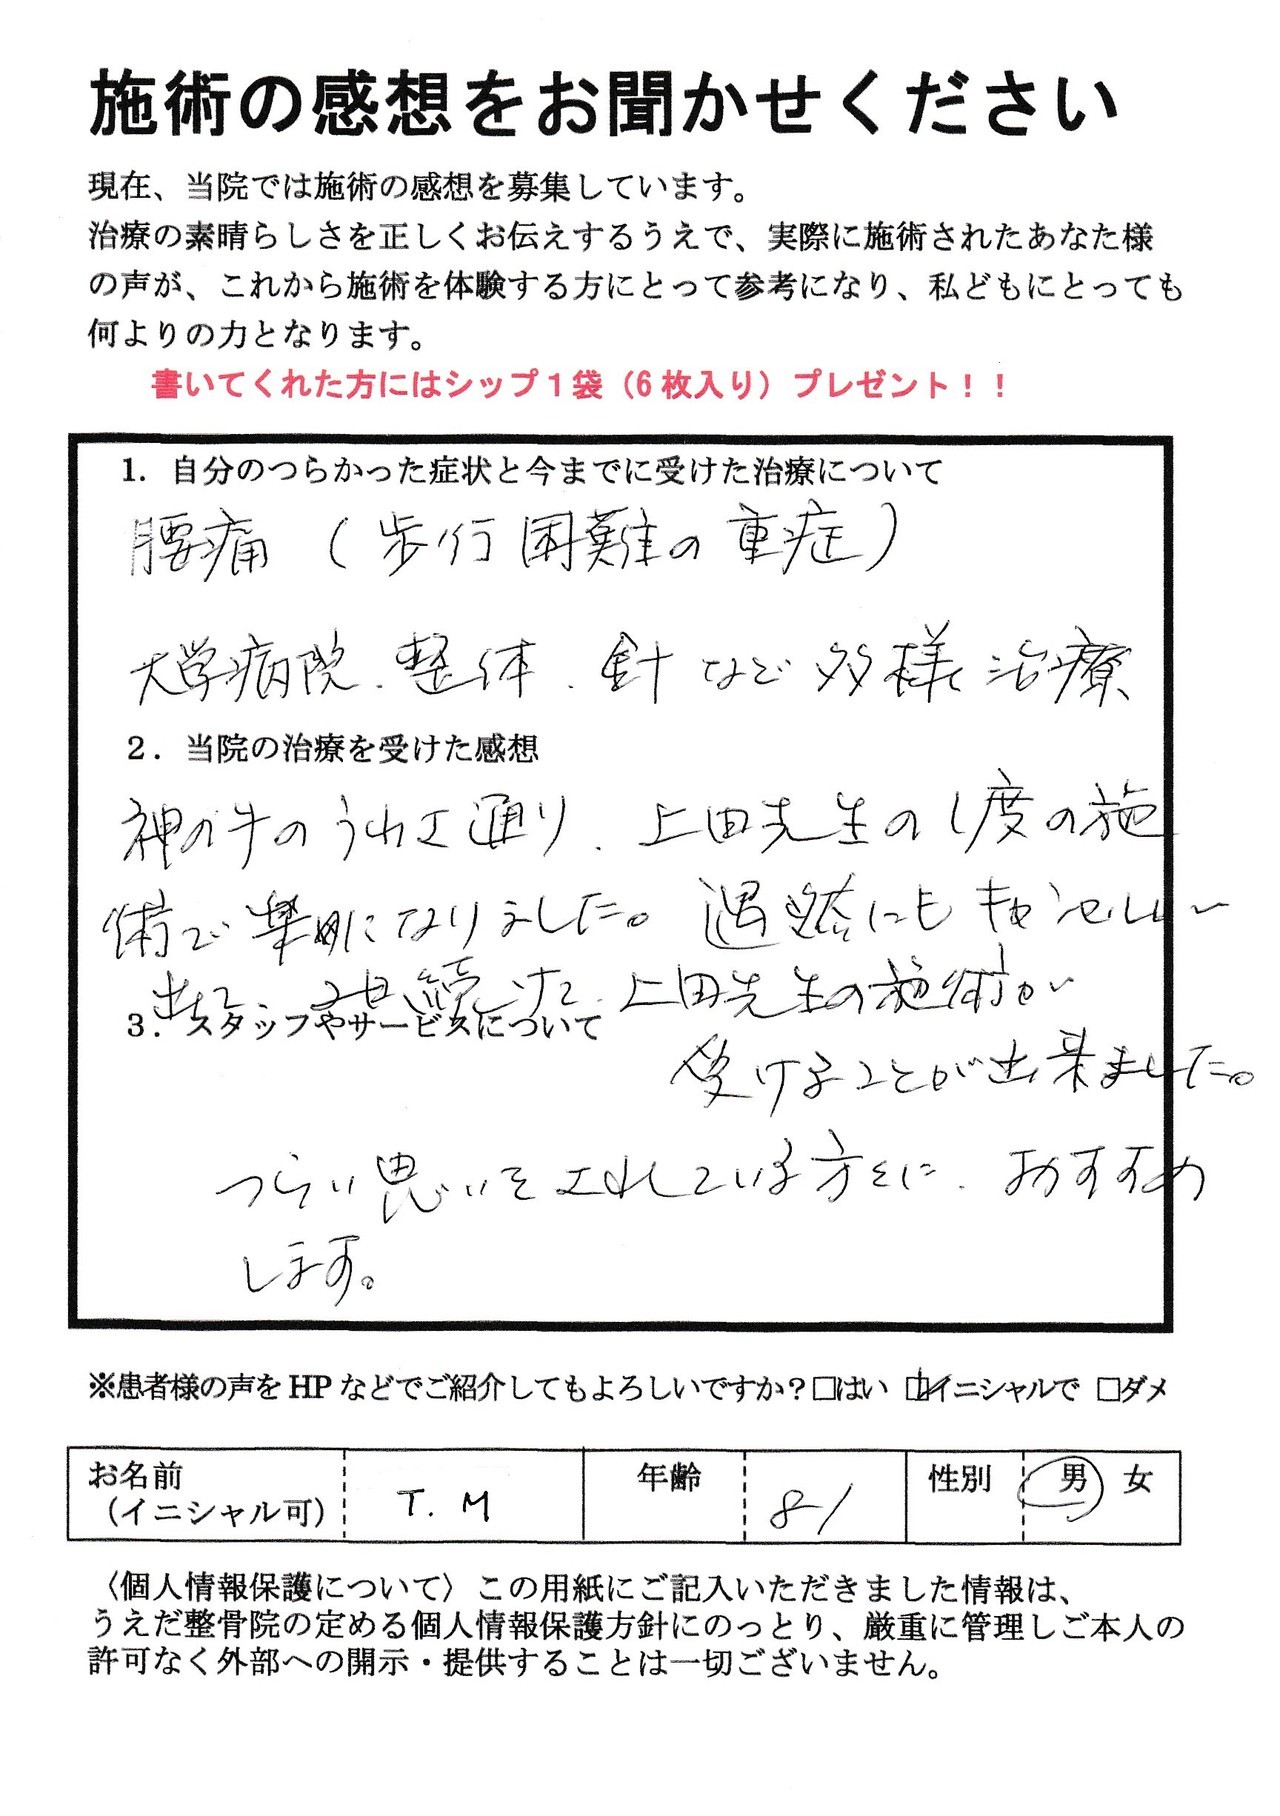 施術の感想をお聞かせください
現在、当院では施術の感想を募集しています。
治療の素晴らしさを正しくお伝えするうえで、実際に施術されたあなた様
の声が、これから施術を体験する方にとって参考になり、私どもにとっても
何よりの力となります。
書いてくれた方にはシップ1袋（6枚入り）プレゼント！！
1. 自分のつらかった症状と今までに受けた治療について
腰痛（歩行困難の重症）
大学病院、整体、針など多様治療
2．当院の治療を受けた感想
神の手のうわさ通り、上田先生の1度の施
術で楽になりました。偶然にもキャンセルが
出て、2日続けて、上田先生の施術が
3．スタッフやサービスについて
受けることが出来ました。
つらい思いをされている方々に、おすすめ
します。
※患者様の声をHPなどでご紹介してもよろしいですか？□はい □イニシャルで □ダメ
お名前 T.M 年齢 81 性別 男 女
（イニシャル可）
〈個人情報保護について〉この用紙にご記入いただきました情報は、
うえだ整骨院の定める個人情報保護方針にのっとり、厳重に管理しご本人の
許可なく外部への開示・提供することは一切ございません。